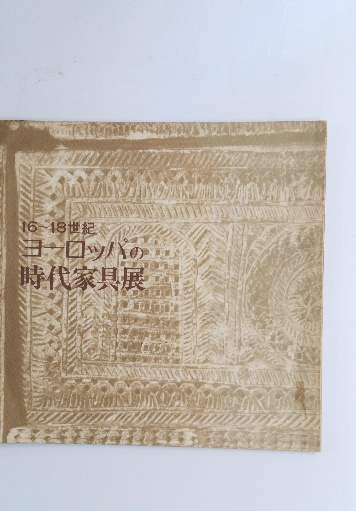 16~18世紀
ヨーロッパの
時代家具展